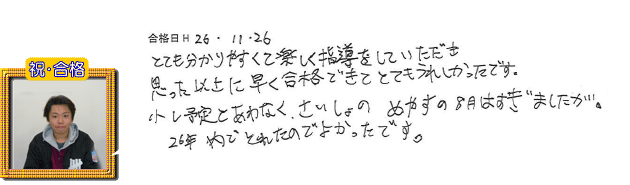 合格日 H 26・11・26
祝・合格
とても分かりやすくて楽しく指導をしていただき
思った以上に早く合格できてとてもうれしかったです。
少し予定とあわなく、さいしょの めやすの 8月はすぎましたが。
26年 内で とれたのでよかったです。